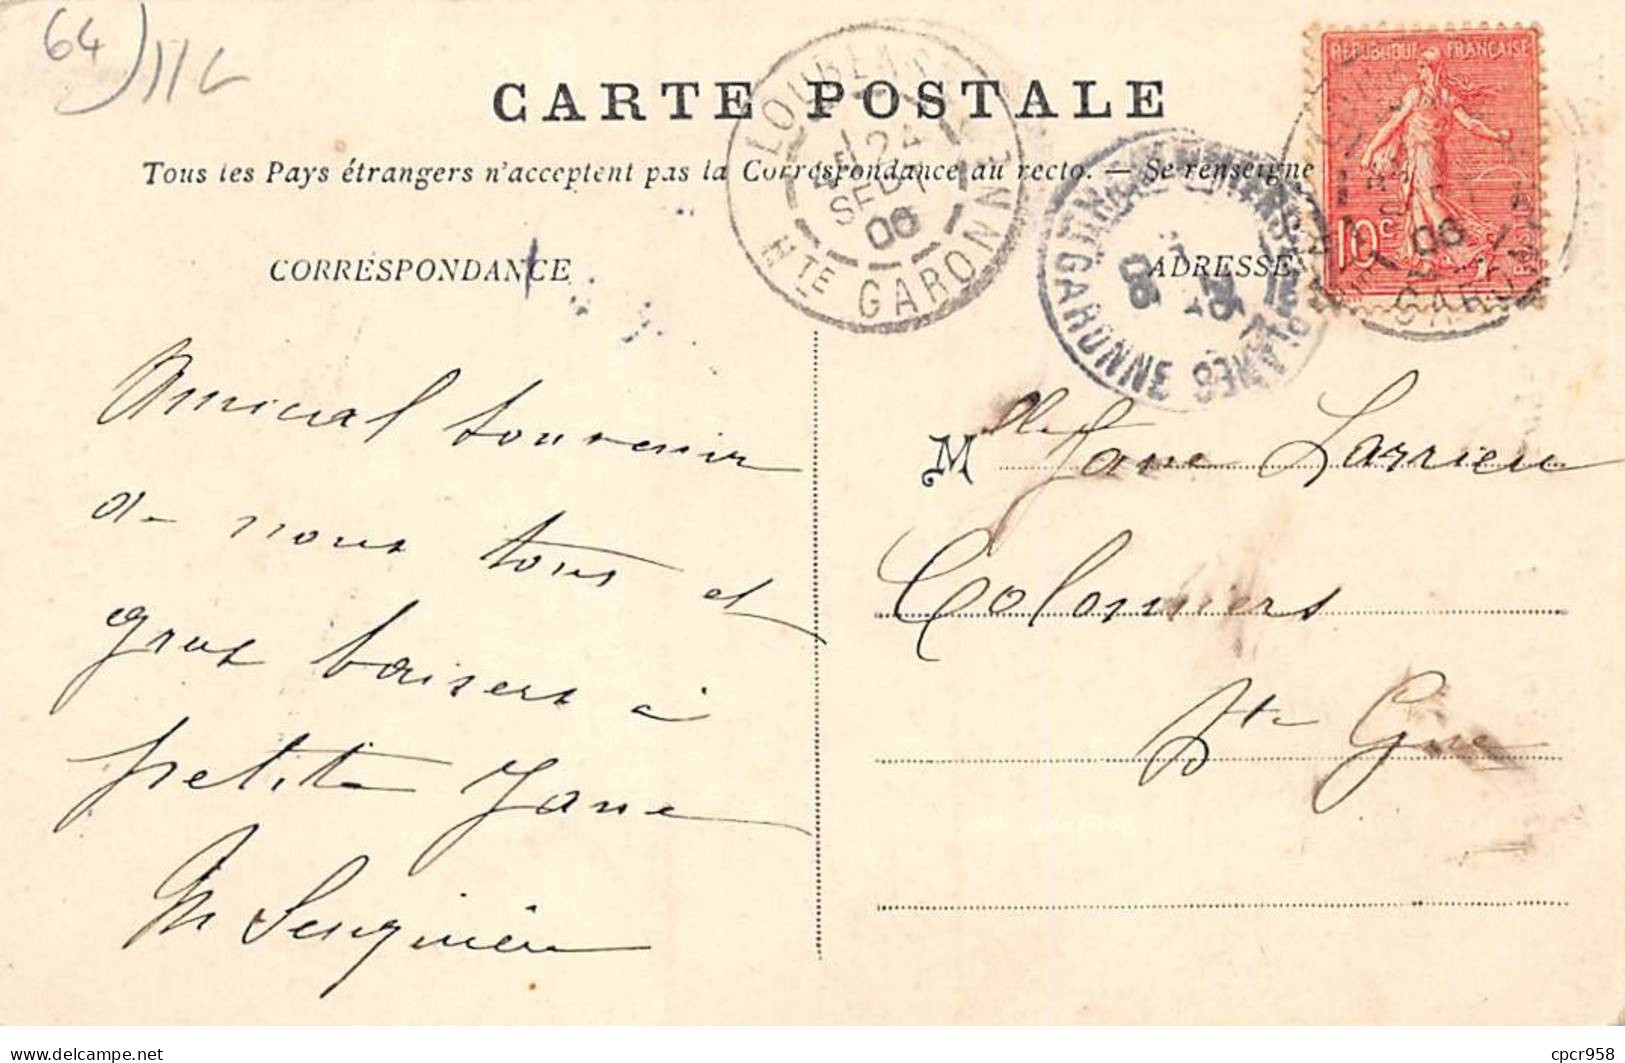 64
CARTE POSTALE
Tous les Pays étrangers n'acceptent pas la Correspondance au recto. — Se renseigne
CORRESPONDANCE
ADRESSE
REPUBLIQUE FRANÇAISE
10c
24
SEPT
06
HTE GARONNE
GARONNE
06
06
Amical souvenir
de nous tous et
gros baisers à
petite Jane
Mlle Jane Larrieu
Colomiers
Hte Gne
delcampe.net
cpcr958